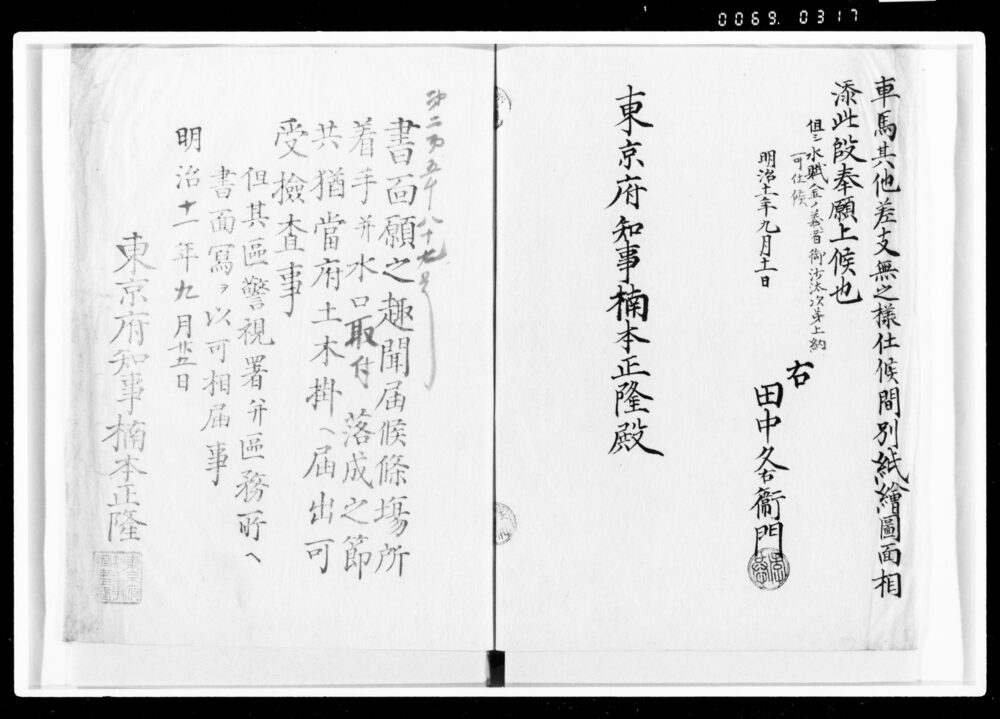 0069.0317
車馬其他差支無之様仕候間別紙繪圖面相
添此段奉願上候也
但シ水賦金ノ義者御沙汰次第上納
可仕候
明治十一年九月十一日
右
田中久右衛門
東京府知事楠本正隆殿
第二万五千八十九号
書面願之趣聞届候條塲所
着手并水口取付落成之節
共猶當府土木掛ヘ届出可
受撿査事
但其區警視署并區務所ヘ
書面寫ヲ以可相届事
明治十一年九月廿五日
東京府知事楠本正隆